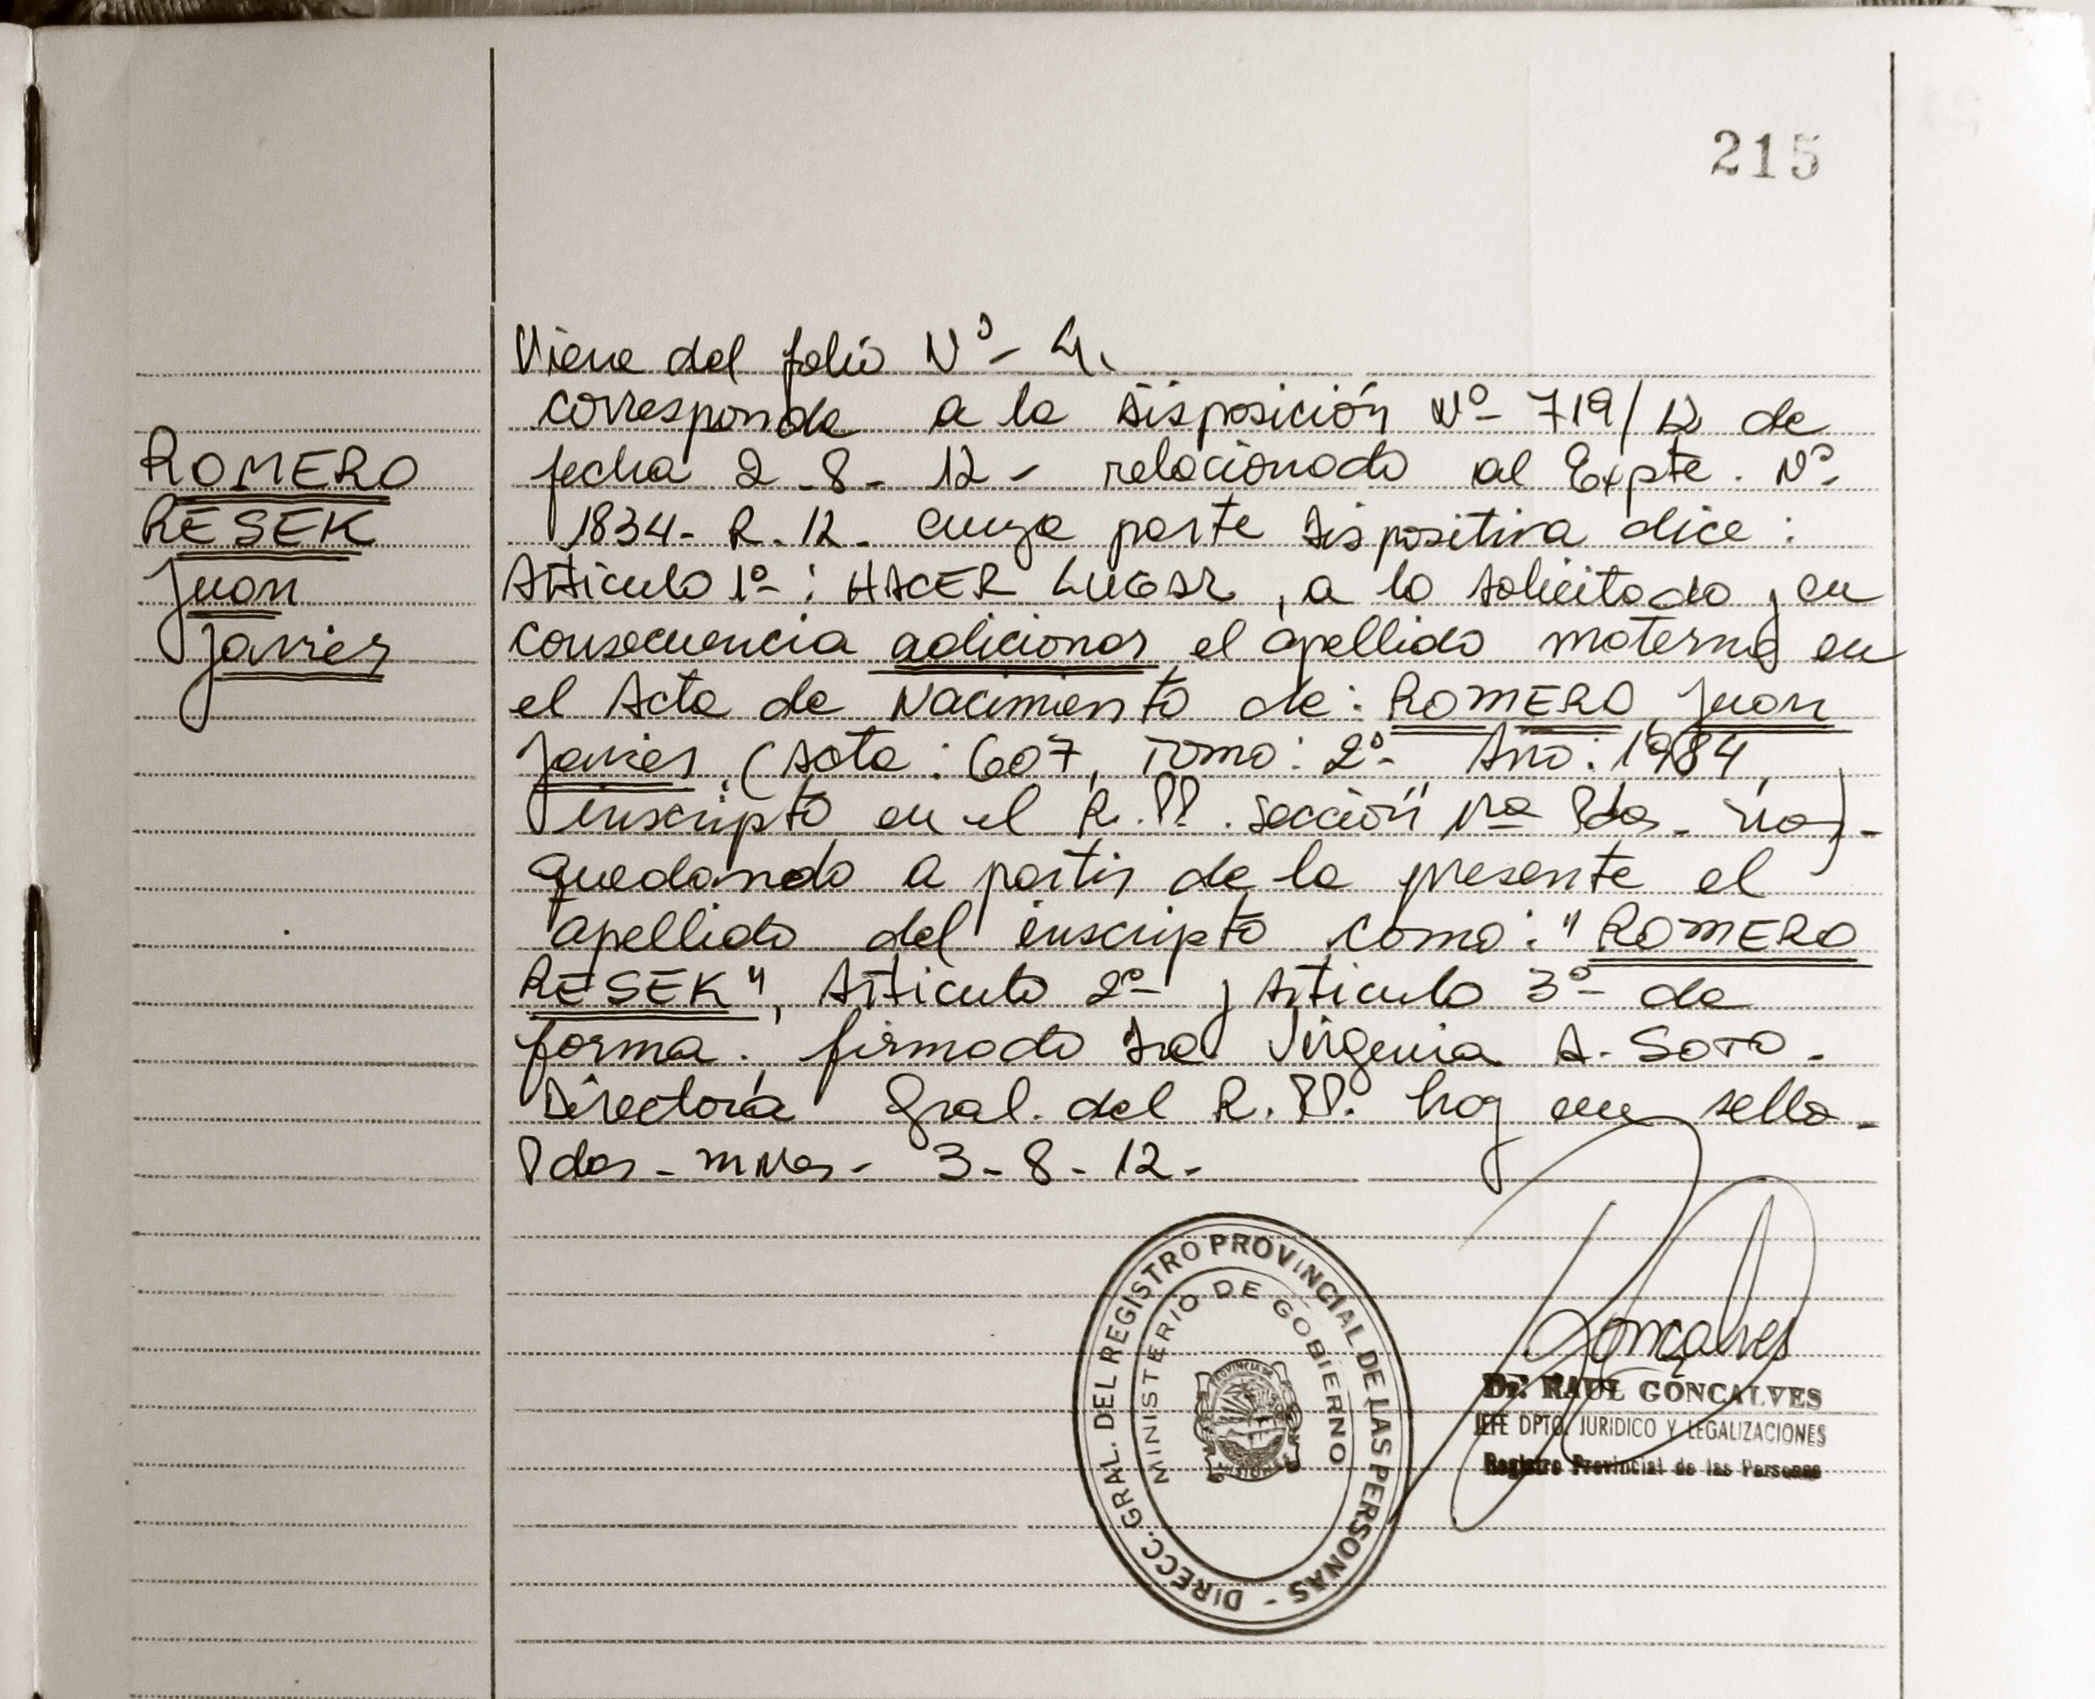 215
Viene del folio Nº- 4.
corresponde a la Disposición Nº- 719/12 de
fecha 2-8-12- relacionado al Expte. Nº-
1834-R.12- cuya parte Dispositiva dice:
ROMERO
RESEK
Juan
Javier
Artículo 1º-: HACER LUGAR, a lo solicitado y en
consecuencia adicionar el apellido materno en
el Acta de Nacimiento de: ROMERO, Juan
Javier. (Acta: 607, Tomo: 2º- Año: 1984,
inscripto en el R.PP. Sección 1ra Pdas.
quedando a partir de la presente el
apellido del inscripto como: "ROMERO
RESEK", Artículo 2º- y Artículo 3º- de
forma. firmado Dra Virginia A. SOTO.
Directora Gral. del R.PP. hay un sello-
Pdas- mnes- 3-8-12-
DIRECC. GRAL. DEL REGISTRO PROVINCIAL DE LAS PERSONAS -
MINISTERIO DE GOBIERNO
Goncalves
Dr. RAUL GONCALVES
JEFE DPTO. JURIDICO Y LEGALIZACIONES
Registro Provincial de las Personas